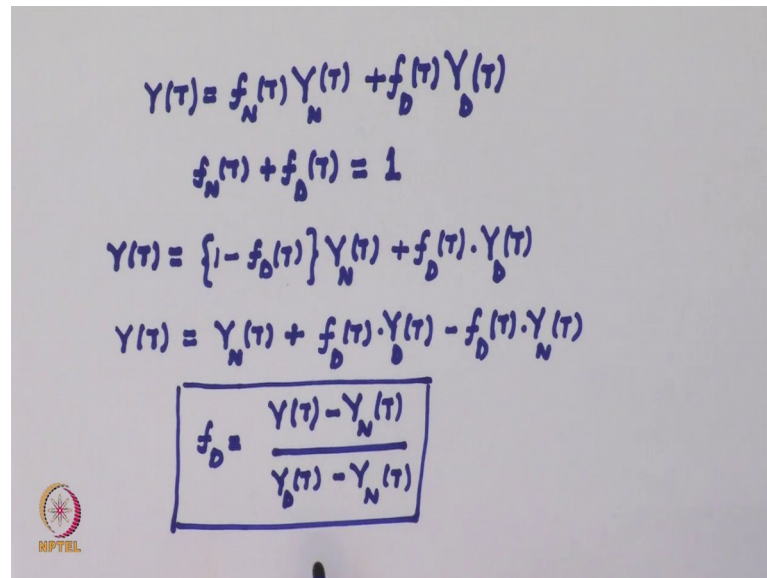 Y(T) = f_N(T) Y_N(T) + f_D(T) Y_D(T)
f_N(T) + f_D(T) = 1
Y(T) = {1 - f_D(T)} Y_N(T) + f_D(T) · Y_D(T)
Y(T) = Y_N(T) + f_D(T) · Y_D(T) - f_D(T) · Y_N(T)
f_D = (Y(T) - Y_N(T)) / (Y_D(T) - Y_N(T))
NPTEL